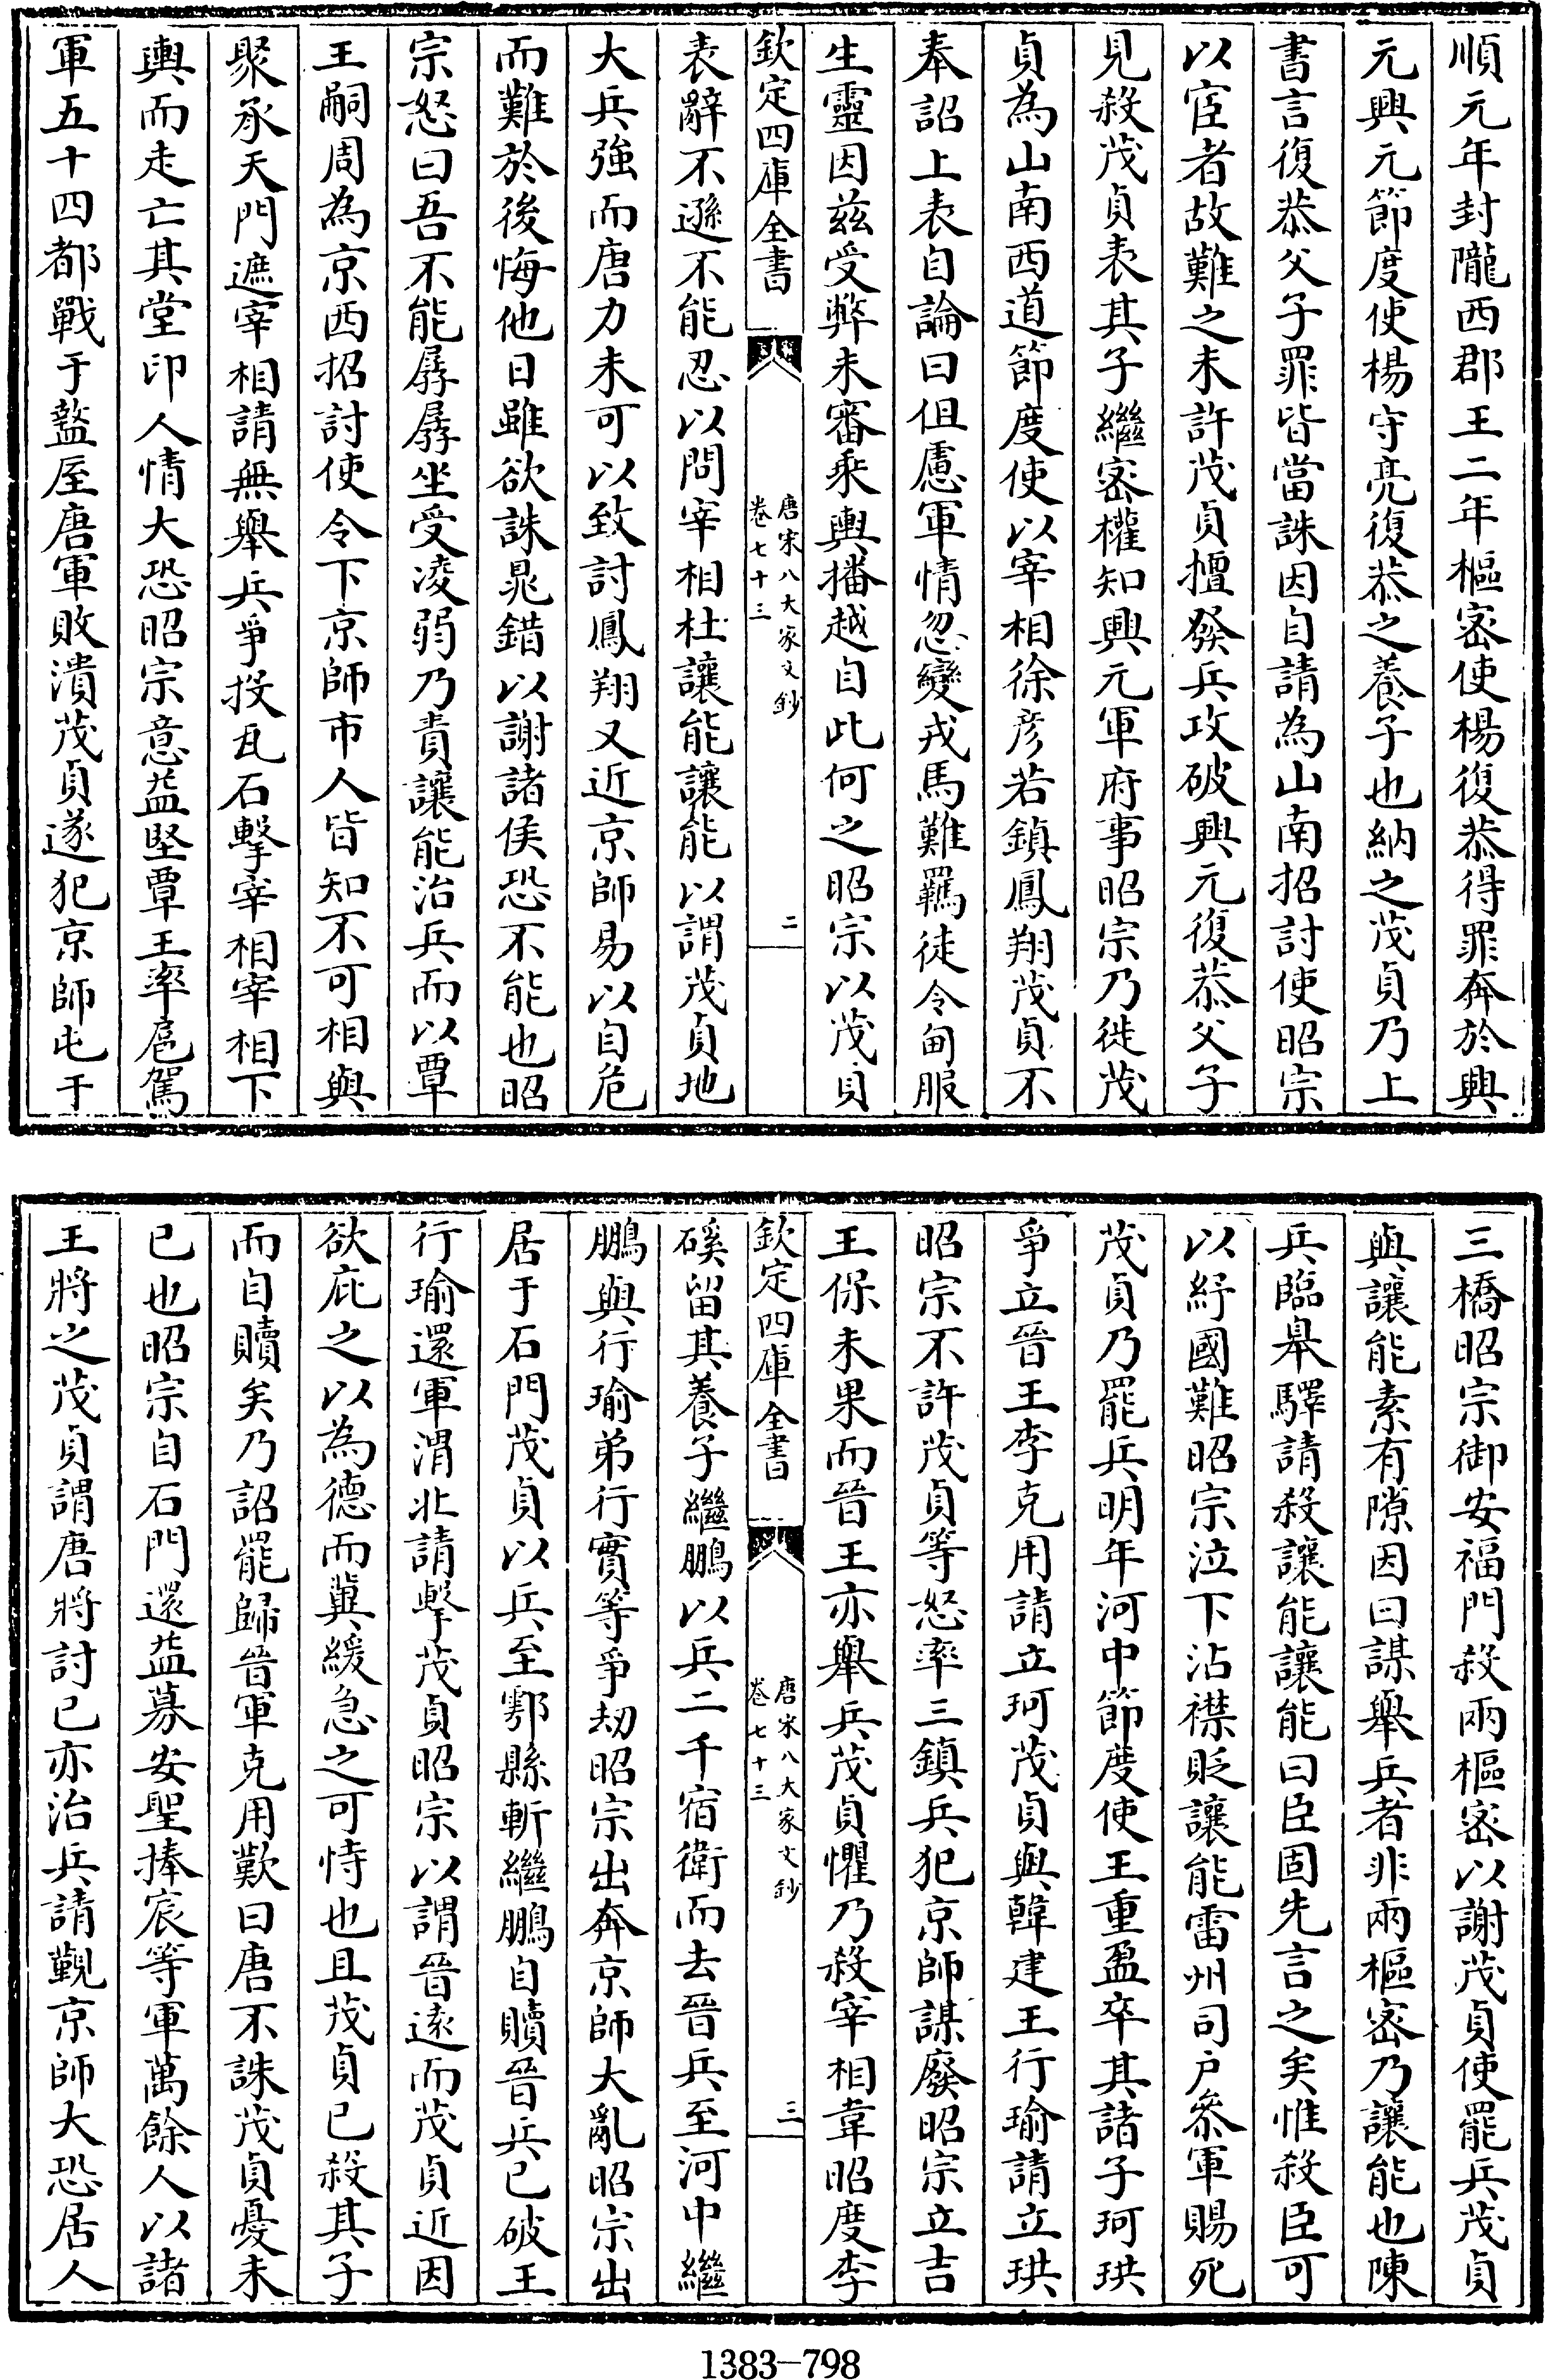 順元年封隴西郡王二年樞密使楊復恭得罪奔於興
元興元節度使楊守亮復恭之養子也納之茂貞乃上
書言復恭父子罪皆當誅因自請為山南招討使昭宗
以宦者故難之未許茂貞擅發兵攻破興元復恭父子
見殺茂貞表其子繼密權知興元軍府事昭宗乃徙茂
貞為山南西道節度使以宰相徐彥若鎮鳳翔茂貞不
奉詔上表自論曰但慮軍情忽變戎馬難羈徒令甸服
生靈因茲受弊未審乘輿播越自此何之昭宗以茂貞
欽定四庫全書
唐宋八大家文鈔
卷七十三
二
表辭不遜不能忍以問宰相杜讓能讓能以謂茂貞地
大兵強而唐力未可以致討鳳翔又近京師易以自危
而難於後悔他日雖欲誅晁錯以謝諸侯恐不能也昭
宗怒曰吾不能孱孱坐受凌弱乃責讓能治兵而以覃
王嗣周為京西招討使令下京師市人皆知不可相與
聚承天門遮宰相請無舉兵爭投瓦石擊宰相宰相下
輿而走亡其堂印人情大恐昭宗意益堅覃王率扈駕
軍五十四都戰于盩厔唐軍敗潰茂貞遂犯京師屯于
三橋昭宗御安福門殺兩樞密以謝茂貞使罷兵茂貞
與讓能素有隙因曰謀舉兵者非兩樞密乃讓能也陳
兵臨臯驛請殺讓能讓能曰臣固先言之矣惟殺臣可
以紓國難昭宗泣下沾襟貶讓能雷州司戶參軍賜死
茂貞乃罷兵明年河中節度使王重盈卒其諸子珂珙
爭立晉王李克用請立珂茂貞與韓建王行瑜請立珙
昭宗不許茂貞等怒率三鎮兵犯京師謀廢昭宗立吉
王保未果而晉王亦舉兵茂貞懼乃殺宰相韋昭度李
欽定四庫全書
唐宋八大家文鈔
卷七十三
三
磎留其養子繼鵬以兵二千宿衛而去晉兵至河中繼
鵬與行瑜弟行實等爭刼昭宗出奔京師大亂昭宗出
居于石門茂貞以兵至鄠縣斬繼鵬自贖晉兵已破王
行瑜還軍渭北請擊茂貞昭宗以謂晉遠而茂貞近因
欲庇之以為德而冀緩急之可恃也且茂貞已殺其子
而自贖矣乃詔罷歸晉軍克用歎曰唐不誅茂貞憂未
已也昭宗自石門還益募安聖捧宸等軍萬餘人以諸
王將之茂貞謂唐將討已亦治兵請覲京師大恐居人
1383-798